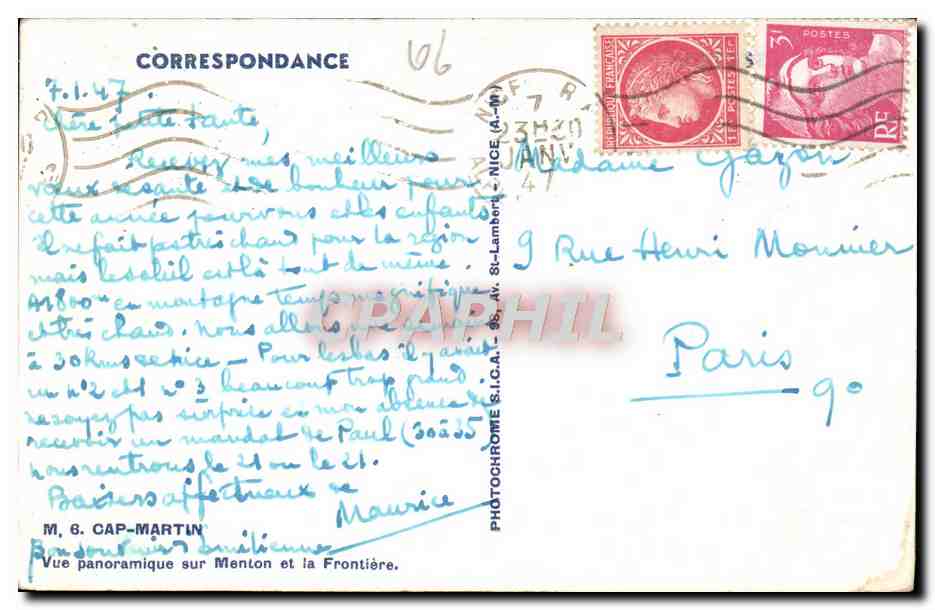 CORRESPONDANCE
66
7.1.47.
Chère petite Tante,
Recevez mes meilleurs
vœux de santé et de bonheur pour
cette année pour vous et les enfants
il ne fait pas très chaud pour la région
mais le soleil est là tout de même.
A 1800m en montagne temps magnifique
et très chaud. Nous allons
à 30 kms de Nice - Pour les bas il y avait
un n°2 et 1 n° 3 beaucoup trop grand.
ne soyez pas surprise en mon absence de
recevoir un mandat de Paul (30 à 35)
nous rentrons le 21.
Baisers affectueux de
Maurice
M. 6. CAP-MARTIN
Bon souvenir Emilienne
Vue panoramique sur Menton et la Frontière.
PHOTOCHROME S.I.C.A. - 98, Av. St-Lambert - NICE (A.-M)
7
23H30
JANV
47
REPUBLIQUE FRANÇAISE
1F POSTES 1F
3F POSTES
RF
Madame Gazon
9 Rue Henri Monnier
Paris
9e
CPAPHIL